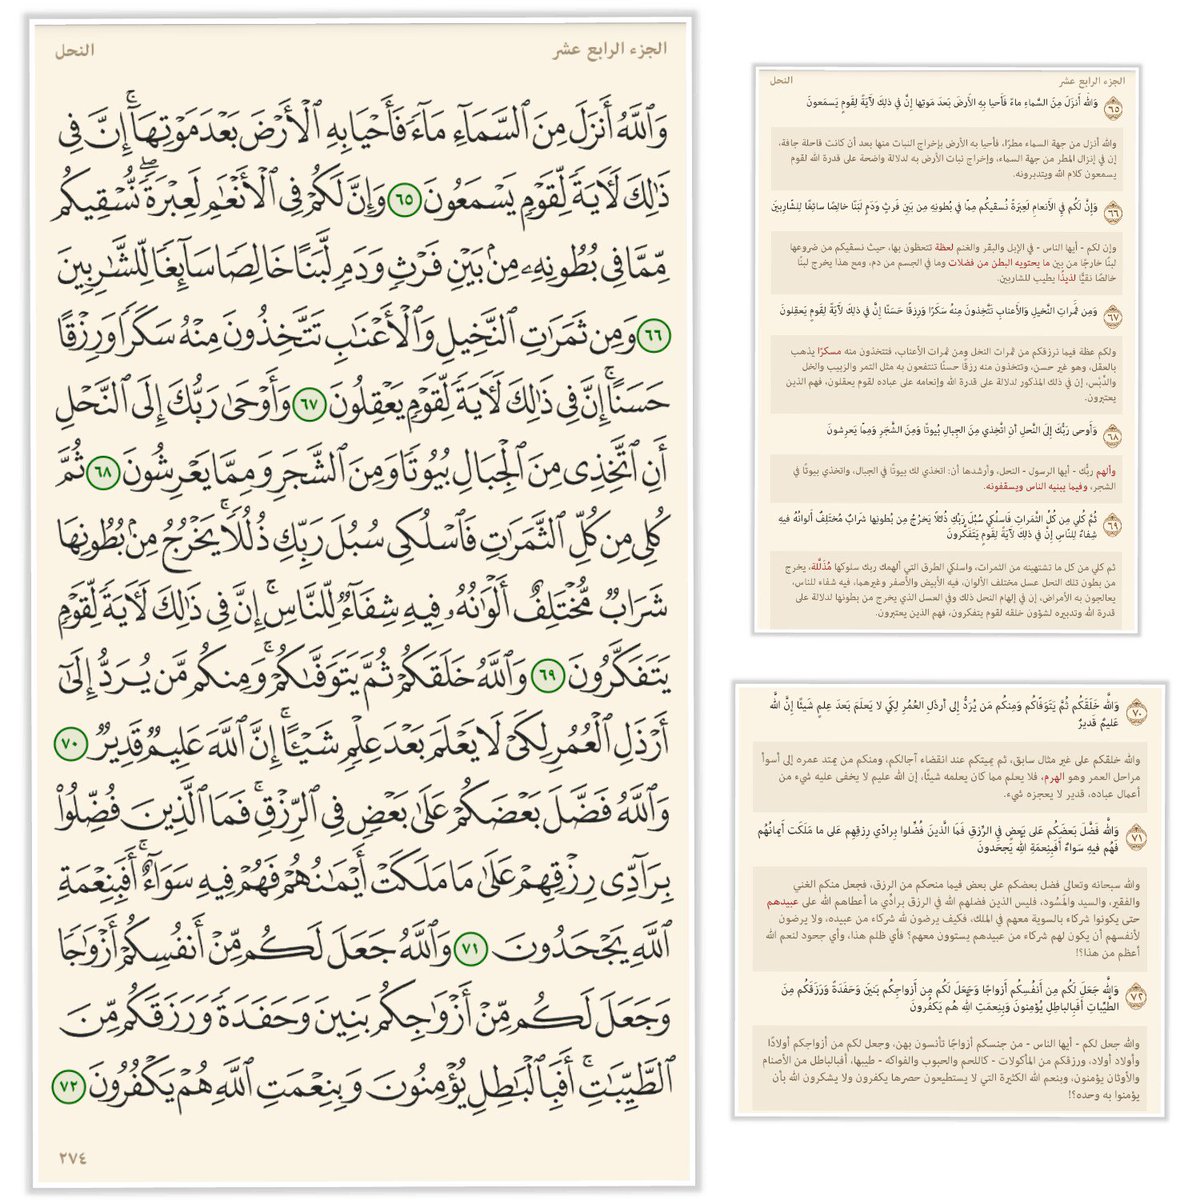 الجزء الرابع عشر
النحل
وَٱللَّهُ أَنزَلَ مِنَ ٱلسَّمَآءِ مَآءً فَأَحْيَا بِهِ ٱلْأَرْضَ بَعْدَ مَوْتِهَآۚ إِنَّ فِى
ذَٰلِكَ لَـَٔايَةً لِّقَوْمٍ يَسْمَعُونَ ٦٥ وَإِنَّ لَكُمْ فِى ٱلْأَنْعَٰمِ لَعِبْرَةًۖ نُّسْقِيكُم
مِّمَّا فِى بُطُونِهِۦ مِنۢ بَيْنِ فَرْثٍ وَدَمٍ لَّبَنًا خَالِصًا سَآئِغًا لِّلشَّٰرِبِينَ
٦٦ وَمِن ثَمَرَٰتِ ٱلنَّخِيلِ وَٱلْأَعْنَٰبِ تَتَّخِذُونَ مِنْهُ سَكَرًا وَرِزْقًا
حَسَنًاۗ إِنَّ فِى ذَٰلِكَ لَـَٔايَةً لِّقَوْمٍ يَعْقِلُونَ ٦٧ وَأَوْحَىٰ رَبُّكَ إِلَى ٱلنَّحْلِ
أَنِ ٱتَّخِذِى مِنَ ٱلْجِبَالِ بُيُوتًا وَمِنَ ٱلشَّجَرِ وَمِمَّا يَعْرِشُونَ ٦٨ ثُمَّ
كُلِى مِن كُلِّ ٱلثَّمَرَٰتِ فَٱسْلُكِى سُبُلَ رَبِّكِ ذُلُلًاۚ يَخْرُجُ مِنۢ بُطُونِهَا
شَرَابٌ مُّخْتَلِفٌ أَلْوَٰنُهُۥ فِيهِ شِفَآءٌ لِّلنَّاسِۗ إِنَّ فِى ذَٰلِكَ لَـَٔايَةً لِّقَوْمٍ
يَتَفَكَّرُونَ ٦٩ وَٱللَّهُ خَلَقَكُمْ ثُمَّ يَتَوَفَّىٰكُمْۚ وَمِنكُم مَّن يُرَدُّ إِلَىٰٓ
أَرْذَلِ ٱلْعُمُرِ لِكَىْ لَا يَعْلَمَ بَعْدَ عِلْمٍ شَيْـًٔاۚ إِنَّ ٱللَّهَ عَلِيمٌ قَدِيرٌ ٧٠
وَٱللَّهُ فَضَّلَ بَعْضَكُمْ عَلَىٰ بَعْضٍ فِى ٱلرِّزْقِۚ فَمَا ٱلَّذِينَ فُضِّلُوا۟
بِرَآدِّى رِزْقِهِمْ عَلَىٰ مَا مَلَكَتْ أَيْمَٰنُهُمْ فَهُمْ فِيهِ سَوَآءٌۚ أَفَبِنِعْمَةِ
ٱللَّهِ يَجْحَدُونَ ٧١ وَٱللَّهُ جَعَلَ لَكُم مِّنْ أَنفُسِكُمْ أَزْوَٰجًا
وَجَعَلَ لَكُم مِّنْ أَزْوَٰجِكُم بَنِينَ وَحَفَدَةً وَرَزَقَكُم مِّنَ
ٱلطَّيِّبَٰتِۚ أَفَبِٱلْبَٰطِلِ يُؤْمِنُونَ وَبِنِعْمَتِ ٱللَّهِ هُمْ يَكْفُرُونَ ٧٢
٢٧٤
الجزء الرابع عشر
النحل
٦٥ وَاللَّهُ أَنزَلَ مِنَ السَّماءِ ماءً فَأَحيا بِهِ الأَرضَ بَعدَ مَوتِها إِنَّ في ذلِكَ لَآيَةً لِقَومٍ يَسمَعونَ
والله أنزل من جهة السماء مطرًا، فأحيا به الأرض بإخراج النبات منها بعد أن كانت قاحلة جافة،
إن في إنزال المطر من جهة السماء، وإخراج نبات الأرض به لدلالة واضحة على قدرة الله لقوم
يسمعون كلام الله ويتدبرونه.
٦٦ وَإِنَّ لَكُم فِي الأَنعامِ لَعِبرَةً نُسقيكُم مِمّا في بُطونِهِ مِن بَينِ فَرثٍ وَدَمٍ لَبَنًا خالِصًا سائِغًا لِلشّارِبينَ
وإن لكم - أيها الناس - في الإبل والبقر والغنم لعظة تتعظون بها، حيث نسقيكم من ضروعها
لبنًا خارجًا من بين ما يحتويه البطن من فضلات وما في الجسم من دم، ومع هذا يخرج لبنًا
خالصًا نقيًّا لذيذًا يطيب للشاربين.
٦٧ وَمِن ثَمَراتِ النَّخيلِ وَالأَعنابِ تَتَّخِذونَ مِنهُ سَكَرًا وَرِزقًا حَسَنًا إِنَّ في ذلِكَ لَآيَةً لِقَومٍ يَعقِلونَ
ولكم عظة فيما نرزقكم من ثمرات النخل ومن ثمرات الأعناب، فتتخذون منه مسكرًا يذهب
بالعقل، وهو غير حسن، وتتخذون منه رزقًا حسنًا تنتفعون به مثل التمر والزبيب والخل
والدِّبْس، إن في ذلك المذكور لدلالة على قدرة الله وإنعامه على عباده لقوم يعقلون، فهم الذين
يعتبرون.
٦٨ وَأَوحى رَبُّكَ إِلَى النَّحلِ أَنِ اتَّخِذي مِنَ الجِبالِ بُيوتًا وَمِنَ الشَّجَرِ وَمِمّا يَعرِشونَ
وألهم ربُّك - أيها الرسول - النحل، وأرشدها أن: اتخذي لك بيوتًا في الجبال، واتخذي بيوتًا في
الشجر، وفيما يبنيه الناس ويسقفونه.
٦٩ ثُمَّ كُلي مِن كُلِّ الثَّمَراتِ فَاسلُكي سُبُلَ رَبِّكِ ذُلُلًا يَخرُجُ مِن بُطونِها شَرابٌ مُختَلِفٌ أَلوانُهُ فيهِ
شِفاءٌ لِلنّاسِ إِنَّ في ذلِكَ لَآيَةً لِقَومٍ يَتَفَكَّرونَ
ثم كلي من كل ما تشتهينه من الثمرات، واسلكي الطرق التي ألهمك ربك سلوكها مُذَلَّلة، يخرج
من بطون تلك النحل عسل مختلف الألوان، فيه الأبيض والأصفر وغيرهما، فيه شفاء للناس،
يعالجون به الأمراض، إن في إلهام النحل ذلك وفي العسل الذي يخرج من بطونها لدلالة على
قدرة الله وتدبيره لشؤون خلقه لقوم يتفكرون، فهم الذين يعتبرون.
٧٠ وَاللَّهُ خَلَقَكُم ثُمَّ يَتَوَفّاكُم وَمِنكُم مَن يُرَدُّ إِلى أَرذَلِ العُمُرِ لِكَي لا يَعلَمَ بَعدَ عِلمٍ شَيئًا إِنَّ اللَّهَ
عَليمٌ قَديرٌ
والله خلقكم على غير مثال سابق، ثم يميتكم عند انقضاء آجالكم، ومنكم من يمتد عمره إلى أسوأ
مراحل العمر وهو الهرم، فلا يعلم مما كان يعلمه شيئًا، إن الله عليم لا يخفى عليه شيء من
أعمال عباده، قدير لا يعجزه شيء.
٧١ وَاللَّهُ فَضَّلَ بَعضَكُم عَلى بَعضٍ فِي الرِّزقِ فَمَا الَّذينَ فُضِّلوا بِرادّي رِزقِهِم عَلى ما مَلَكَت أَيمانُهُم
فَهُم فيهِ سَواءٌ أَفَبِنِعمَةِ اللَّهِ يَجحَدونَ
والله سبحانه وتعالى فضل بعضكم على بعض فيما منحكم من الرزق، فجعل منكم الغني
والفقير، والسيد والمَسُود، فليس الذين فضلهم الله في الرزق برادِّي ما أعطاهم الله على عبيدهم
حتى يكونوا شركاء بالسوية معهم في الملك، فكيف يرضون لله شركاء من عبيده، ولا يرضون
لأنفسهم أن يكون لهم شركاء من عبيدهم يستوون معهم؟ فأي ظلم هذا، وأي جحود لنعم الله
أعظم من هذا؟!
٧٢ وَاللَّهُ جَعَلَ لَكُم مِن أَنفُسِكُم أَزواجًا وَجَعَلَ لَكُم مِن أَزواجِكُم بَنينَ وَحَفَدَةً وَرَزَقَكُم مِنَ
الطَّيِّباتِ أَفَبِالباطِلِ يُؤمِنونَ وَبِنِعمَتِ اللَّهِ هُم يَكفُرونَ
والله جعل لكم - أيها الناس - من جنسكم أزواجًا تأنسون بهن، وجعل لكم من أزواجكم أولادًا
وأولاد أولاد، ورزقكم من المأكولات - كاللحم والحبوب والفواكه - طيبها، أفبالباطل من الأصنام
والأوثان يؤمنون، وبنعم الله الكثيرة التي لا يستطيعون حصرها يكفرون ولا يشكرون الله بأن
يؤمنوا به وحده؟!